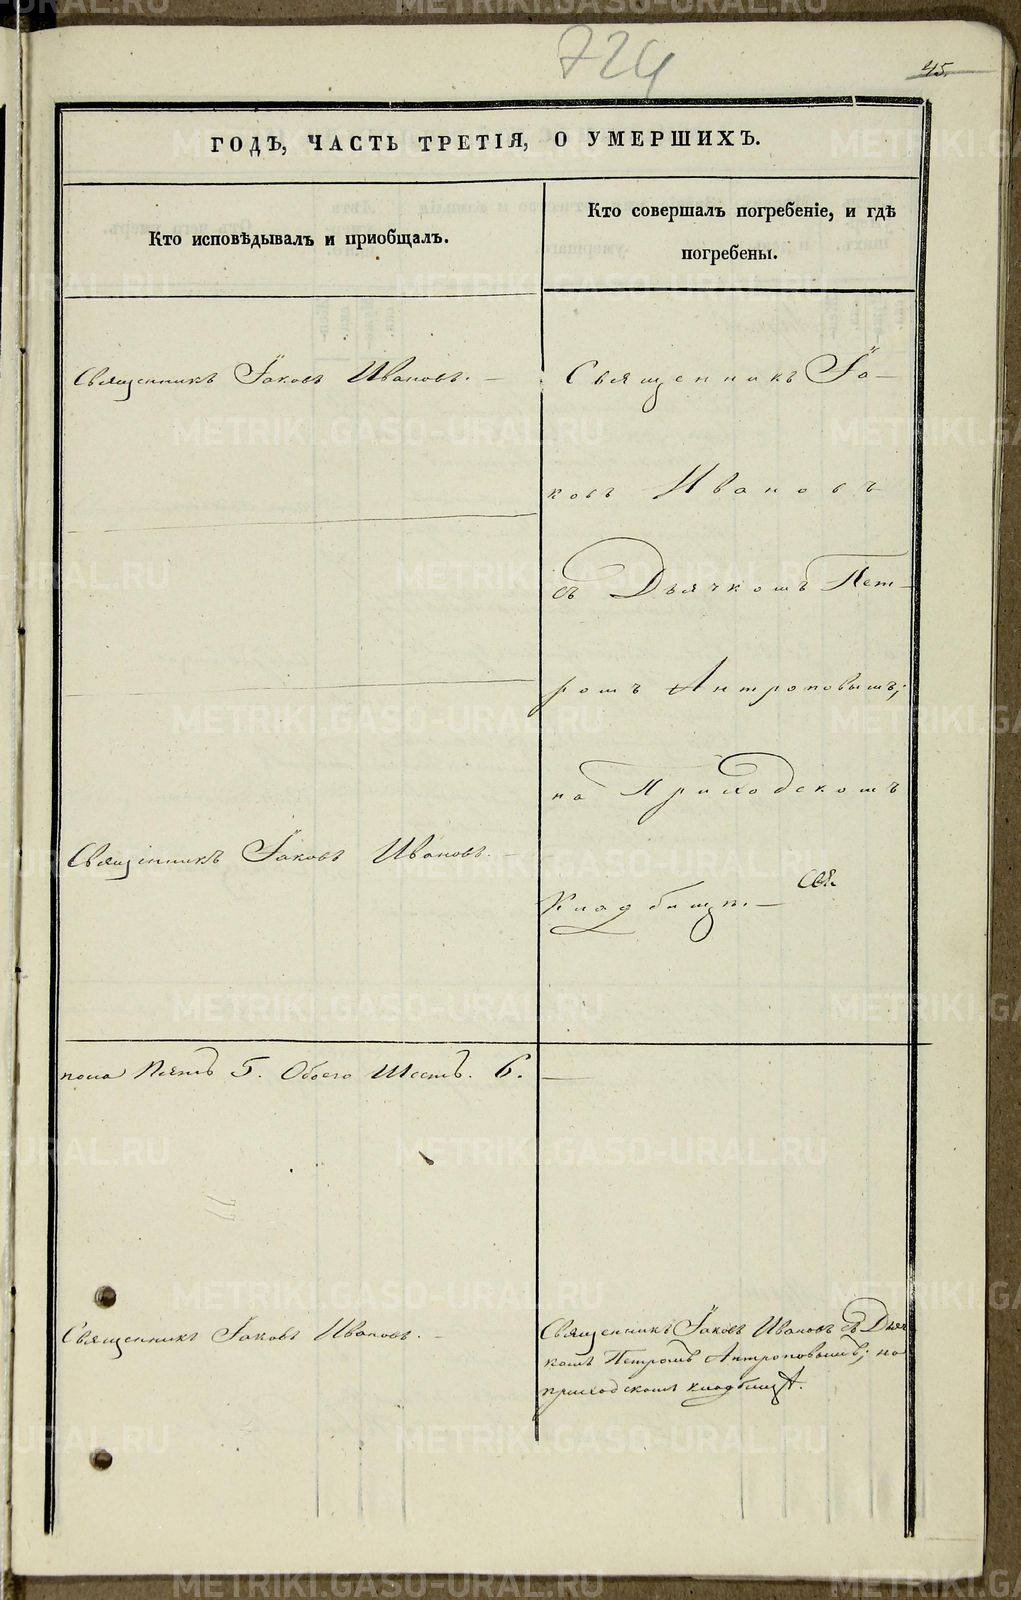 724
45.
ГОДЪ, ЧАСТЬ ТРЕТІЯ, О УМЕРШИХЪ.
Кто исповѣдывалъ и приобщалъ.
Кто совершалъ погребеніе, и гдѣ
погребены.
Священникъ Іаковъ Ивановъ. —
Священникъ Іаковъ Ивановъ. —
Священникъ Іа-
ковъ Ивановъ
съ Дьячкомъ Пет-
ромъ Антроповымъ;
на Приходскомъ
Кладбищѣ. —
пола Пять 5. Обоего Шесть. 6. —
Священникъ Іаковъ Ивановъ. —
Священникъ Іаковъ Ивановъ съ Дьяч
комъ Петромъ Антроповымъ; на
приходскомъ кладбищѣ.
METRIKI.GASO-URAL.RU